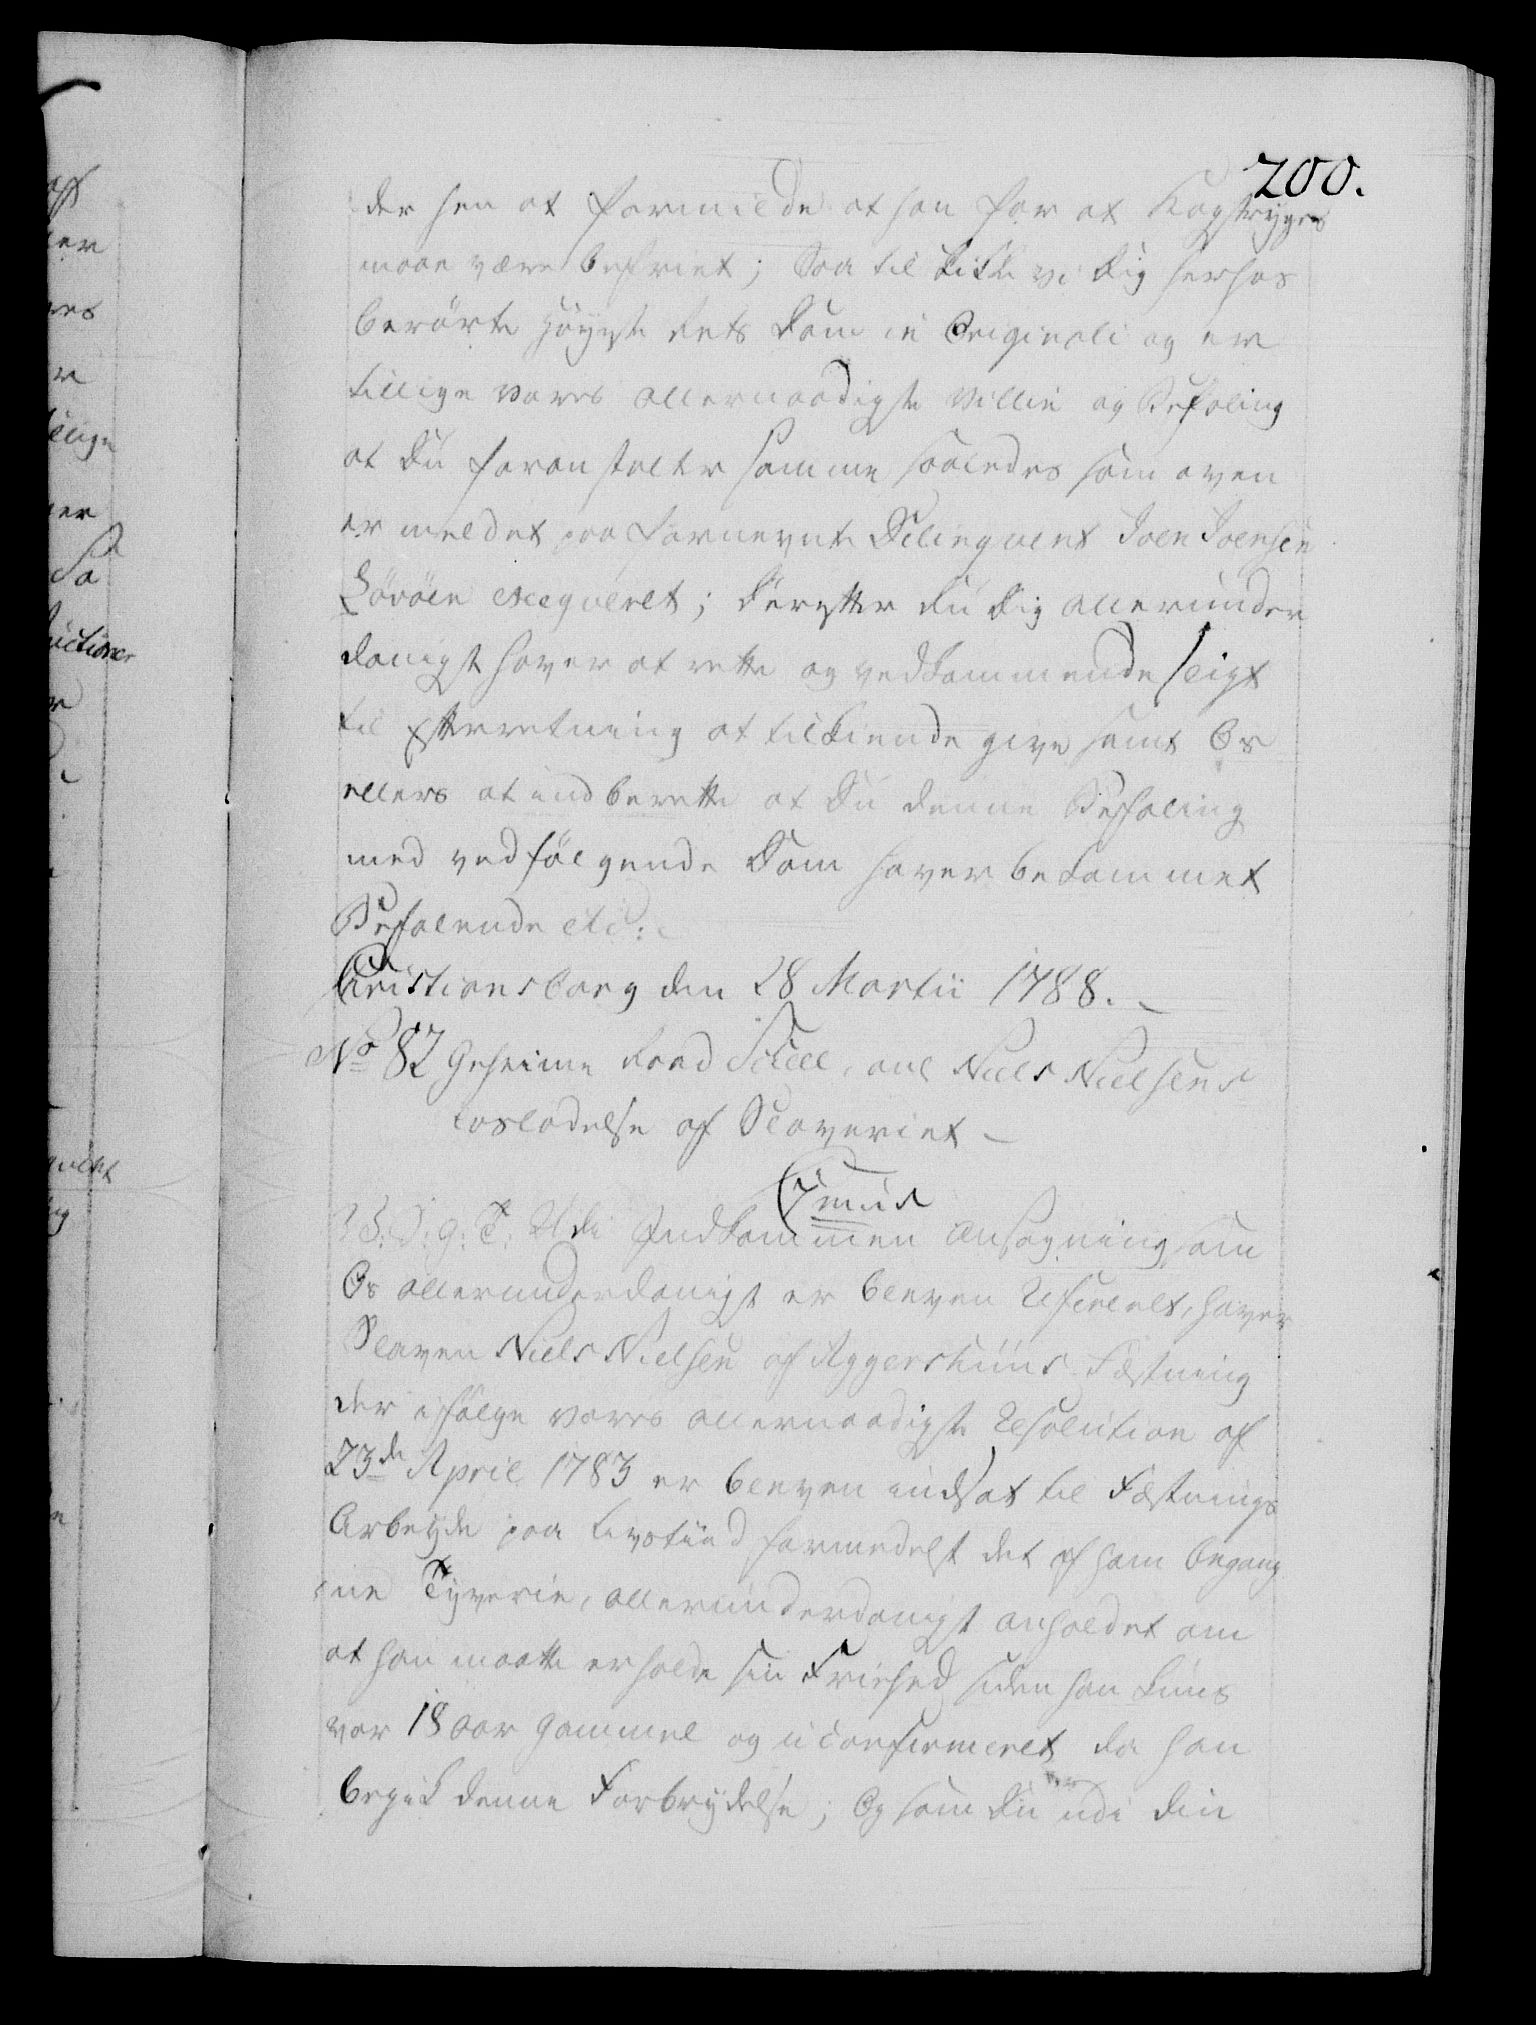 200.
der hen at formilde at han for at Kagstryges
maae være befriet; Saa tilskikke vi Dig herhos
berørte Høyeste Rets Dom in Originali og er
tillige vores allernaadigste Villie og Befaling
at Du foranstalter samme saaledes som oven
er meldet paa fornevnte Delinqvent Joen Joensen
Løvøen exeqveret; Derefter Du Dig allerunder
danigst haver at rette og vedkommende sligt
til Efterretning at tilkiende give samt Os
ellers at indberette at Du denne Befaling
med vedfølgende Dom haver bekommet
Befalende etc:
Christiansborg den 28 Martii 1788.
No 82 Geheime Raad Scheel, anl Niels Nielsens
Losladelse af Slaveriet
Gmüs
V: S: g: T: Udi Indkommen Ansøgning som
Os allerunderdanigst er bleven Refereret, haver
Slaven Niels Nielsen af Aggershuus Fæstning
der ifølge vores allernaadigste Resolution af
23de April 1783 er bleven indsat til Fæstnings
Arbeyde paa Livstiid formedelst det af ham begang
ne Tyverie, allerunderdanigst anholdet om
at han maatte erholde sin Friehed siden han kuns
var 18 aar gammel og uconfirmeret da han
begik denne Forbrydelse; Og som Du udi Din